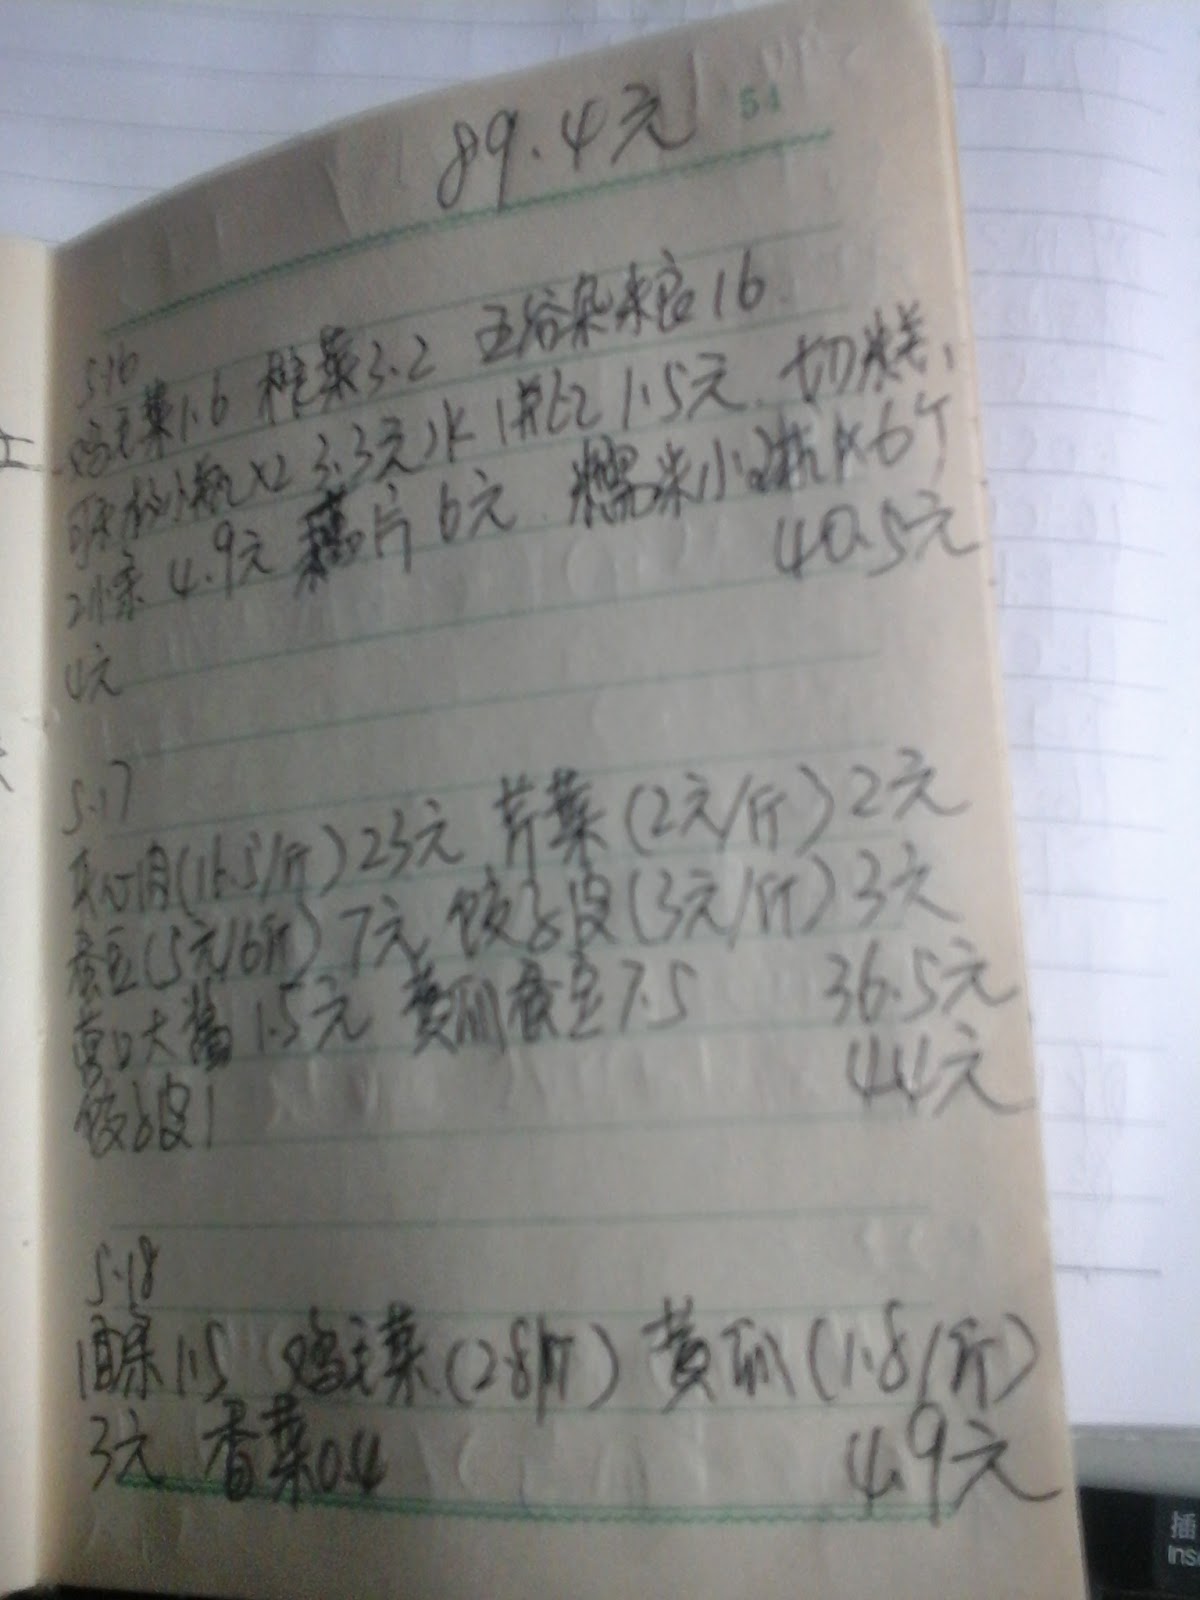 54
89.4元
5.16
鸡毛菜1.6 榨菜3.2 五谷杂粮16
小瓶x2 3.3元 水1瓶 1.5元 切糕、
4.9元 藕片6元 糯米小 6个
4元 40.5元
5.17
夹心肉(16.5/斤)23元 芹菜(2元/斤)2元
蚕豆(5元/6斤)7元 饺子皮(3元/斤)3元
黄豆大酱1.5元 黄瓜蚕豆7.5 36.5元
饺子皮1 44元
5.18
1.5 鸡毛菜(2.8/斤) 黄瓜(1.8/斤)
3元 香菜0.4 4.9元
插
Ins